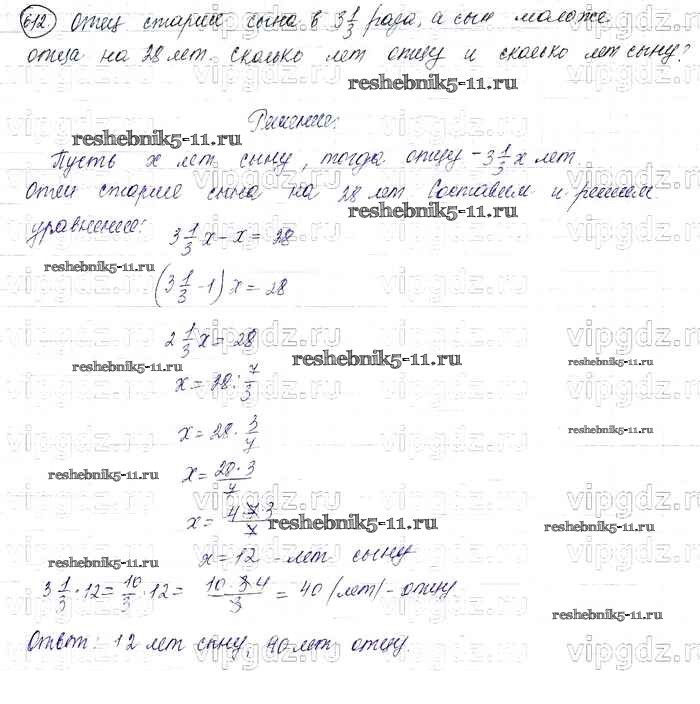 612. Отец старше сына в 3 1/3 раза, а сын моложе
отца на 28 лет. Сколько лет отцу и сколько лет сыну?
Решение:
reshebnik5-11.ru
reshebnik5-11.ru
Пусть x лет сыну, тогда отцу - 3 1/3 x лет.
Отец старше сына на 28 лет. Составим и решим
reshebnik5-11.ru
уравнение:
3 1/3 x - x = 28
reshebnik5-11.ru
(3 1/3 - 1) x = 28
2 1/3 x = 28
reshebnik5-11.ru
reshebnik5-11.ru
reshebnik5-11.ru
x = 28 : 7/3
x = 28 · 3/7
reshebnik5-11.ru
x = 28 · 3 / 7
reshebnik5-11.ru
x = 4 · 7 · 3 / 7
reshebnik5-11.ru
reshebnik5-11.ru
x = 12 - лет сыну
reshebnik5-11.ru
3 1/3 · 12 = 10/3 · 12 = 10 · 3 · 4 / 3 = 40 (лет) - отцу
reshebnik5-11.ru
Ответ: 12 лет сыну, 40 лет отцу.
vipgdz.ru